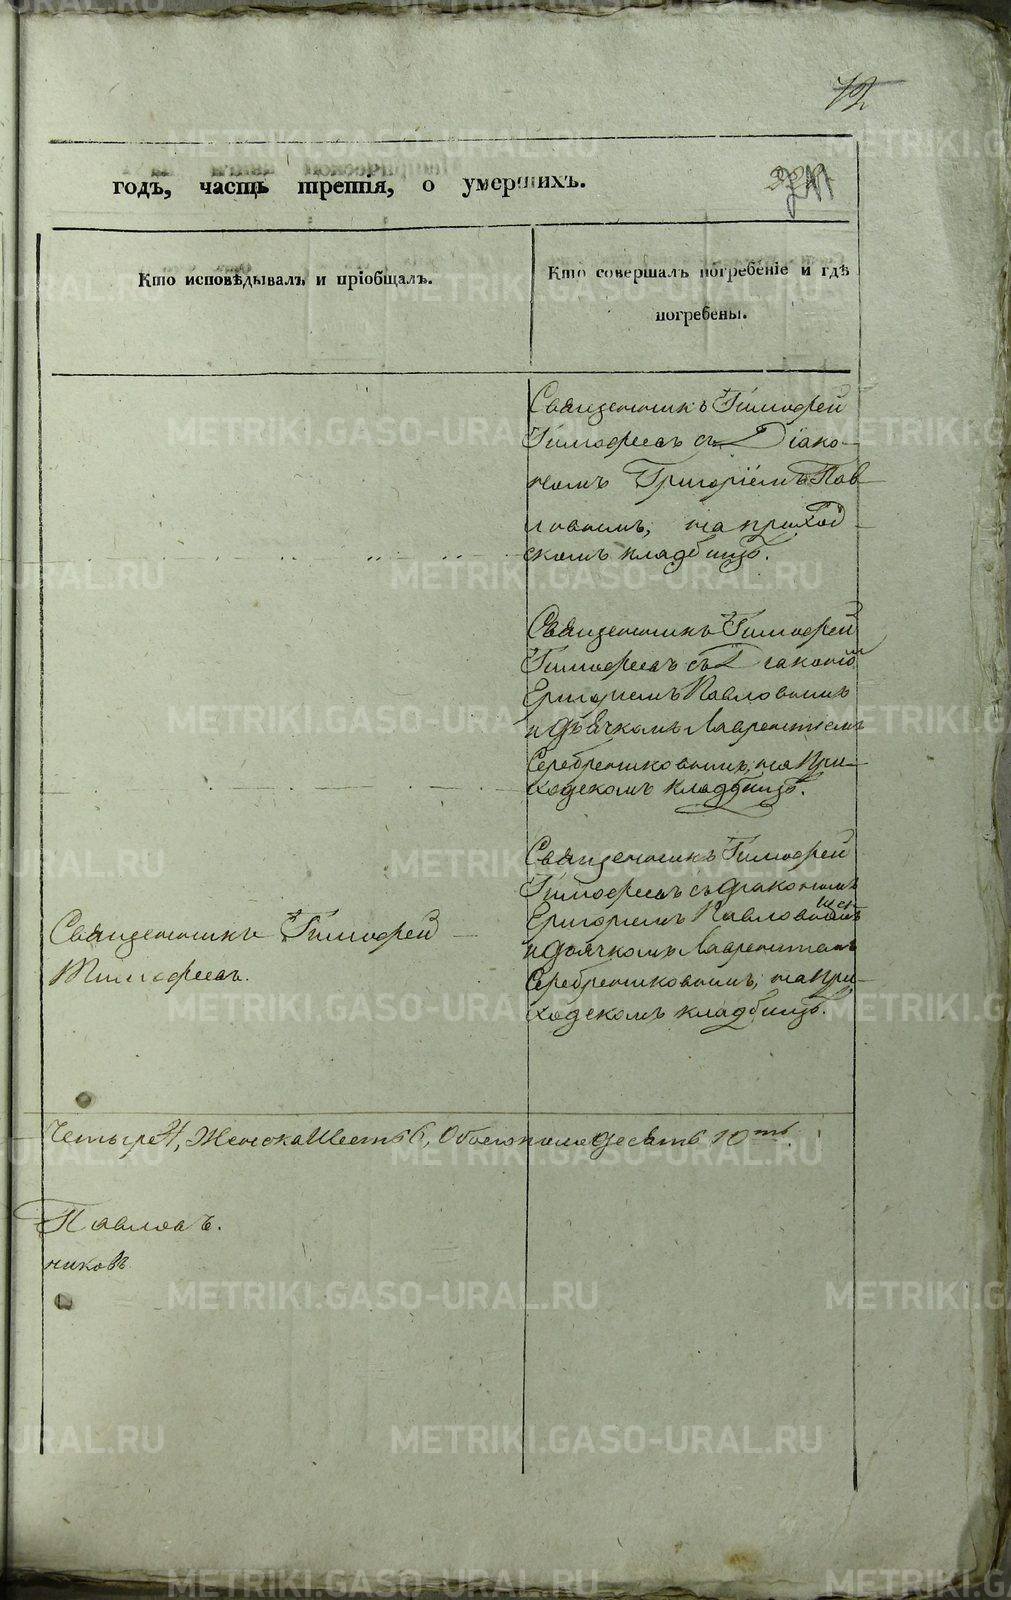 12
годъ, часть третія, о умершихъ.
Кто исповѣдывалъ и пріобщалъ.
Кто совершалъ погребеніе и гдѣ
погребены.
Священникъ Тимофей
Тимофеевъ съ Діако-
номъ Григоріемъ Пав-
ловымъ, на приход-
скомъ кладбищѣ.
Священникъ Тимофей
Тимофеевъ съ Діакономъ
Григориемъ Павловымъ
и дьячкомъ Лаврентиемъ
Серебрениковымъ, на при-
ходскомъ кладбищѣ.
Священникъ Тимофей
Тимофеевъ.
Священникъ Тимофей
Тимофеевъ съ диакономъ
Григориемъ Павловымъ
и дьячкомъ Лаврентиемъ
Серебрениковымъ, на при-
ходскомъ кладбищѣ.
Четыре 4, Женска Шесть 6, Обоего пола десять 10ть.
Павловъ.
никовъ
METRIKI.GASO-URAL.RU